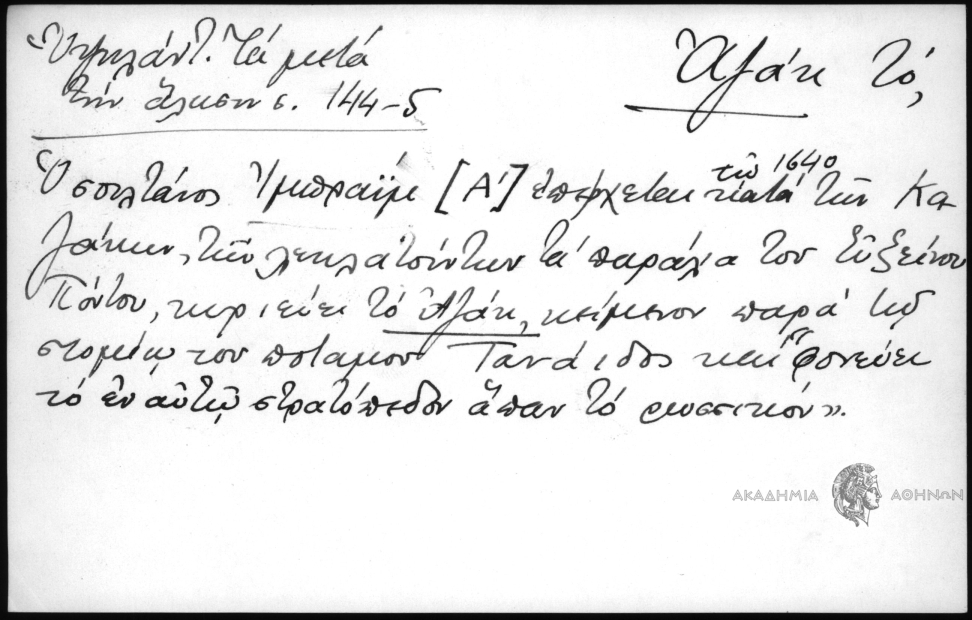 Ὑψηλάντ. Τά μετά
τήν ἅλωσιν σ. 144-5
Ἀζάκ τό,
Ὁ σουλτάνος Ἰμπραΐμ [Α'] ἐπέρχεται τῷ 1640 κατά τῶν Κα-
ζάκων, τῶν λεηλατούντων τά παράλια τοῦ Εὐξείνου
Πόντου, κυριεύει τό Ἀζάκ, κείμενον παρά τῷ
στομίῳ τοῦ ποταμοῦ Τανάϊδος καί "φονεύει
τό ἐν αὐτῷ στρατόπεδον ἅπαν τό ρωσσικόν».
ΑΚΑΔΗΜΙΑ ΑΘΗΝΩΝ